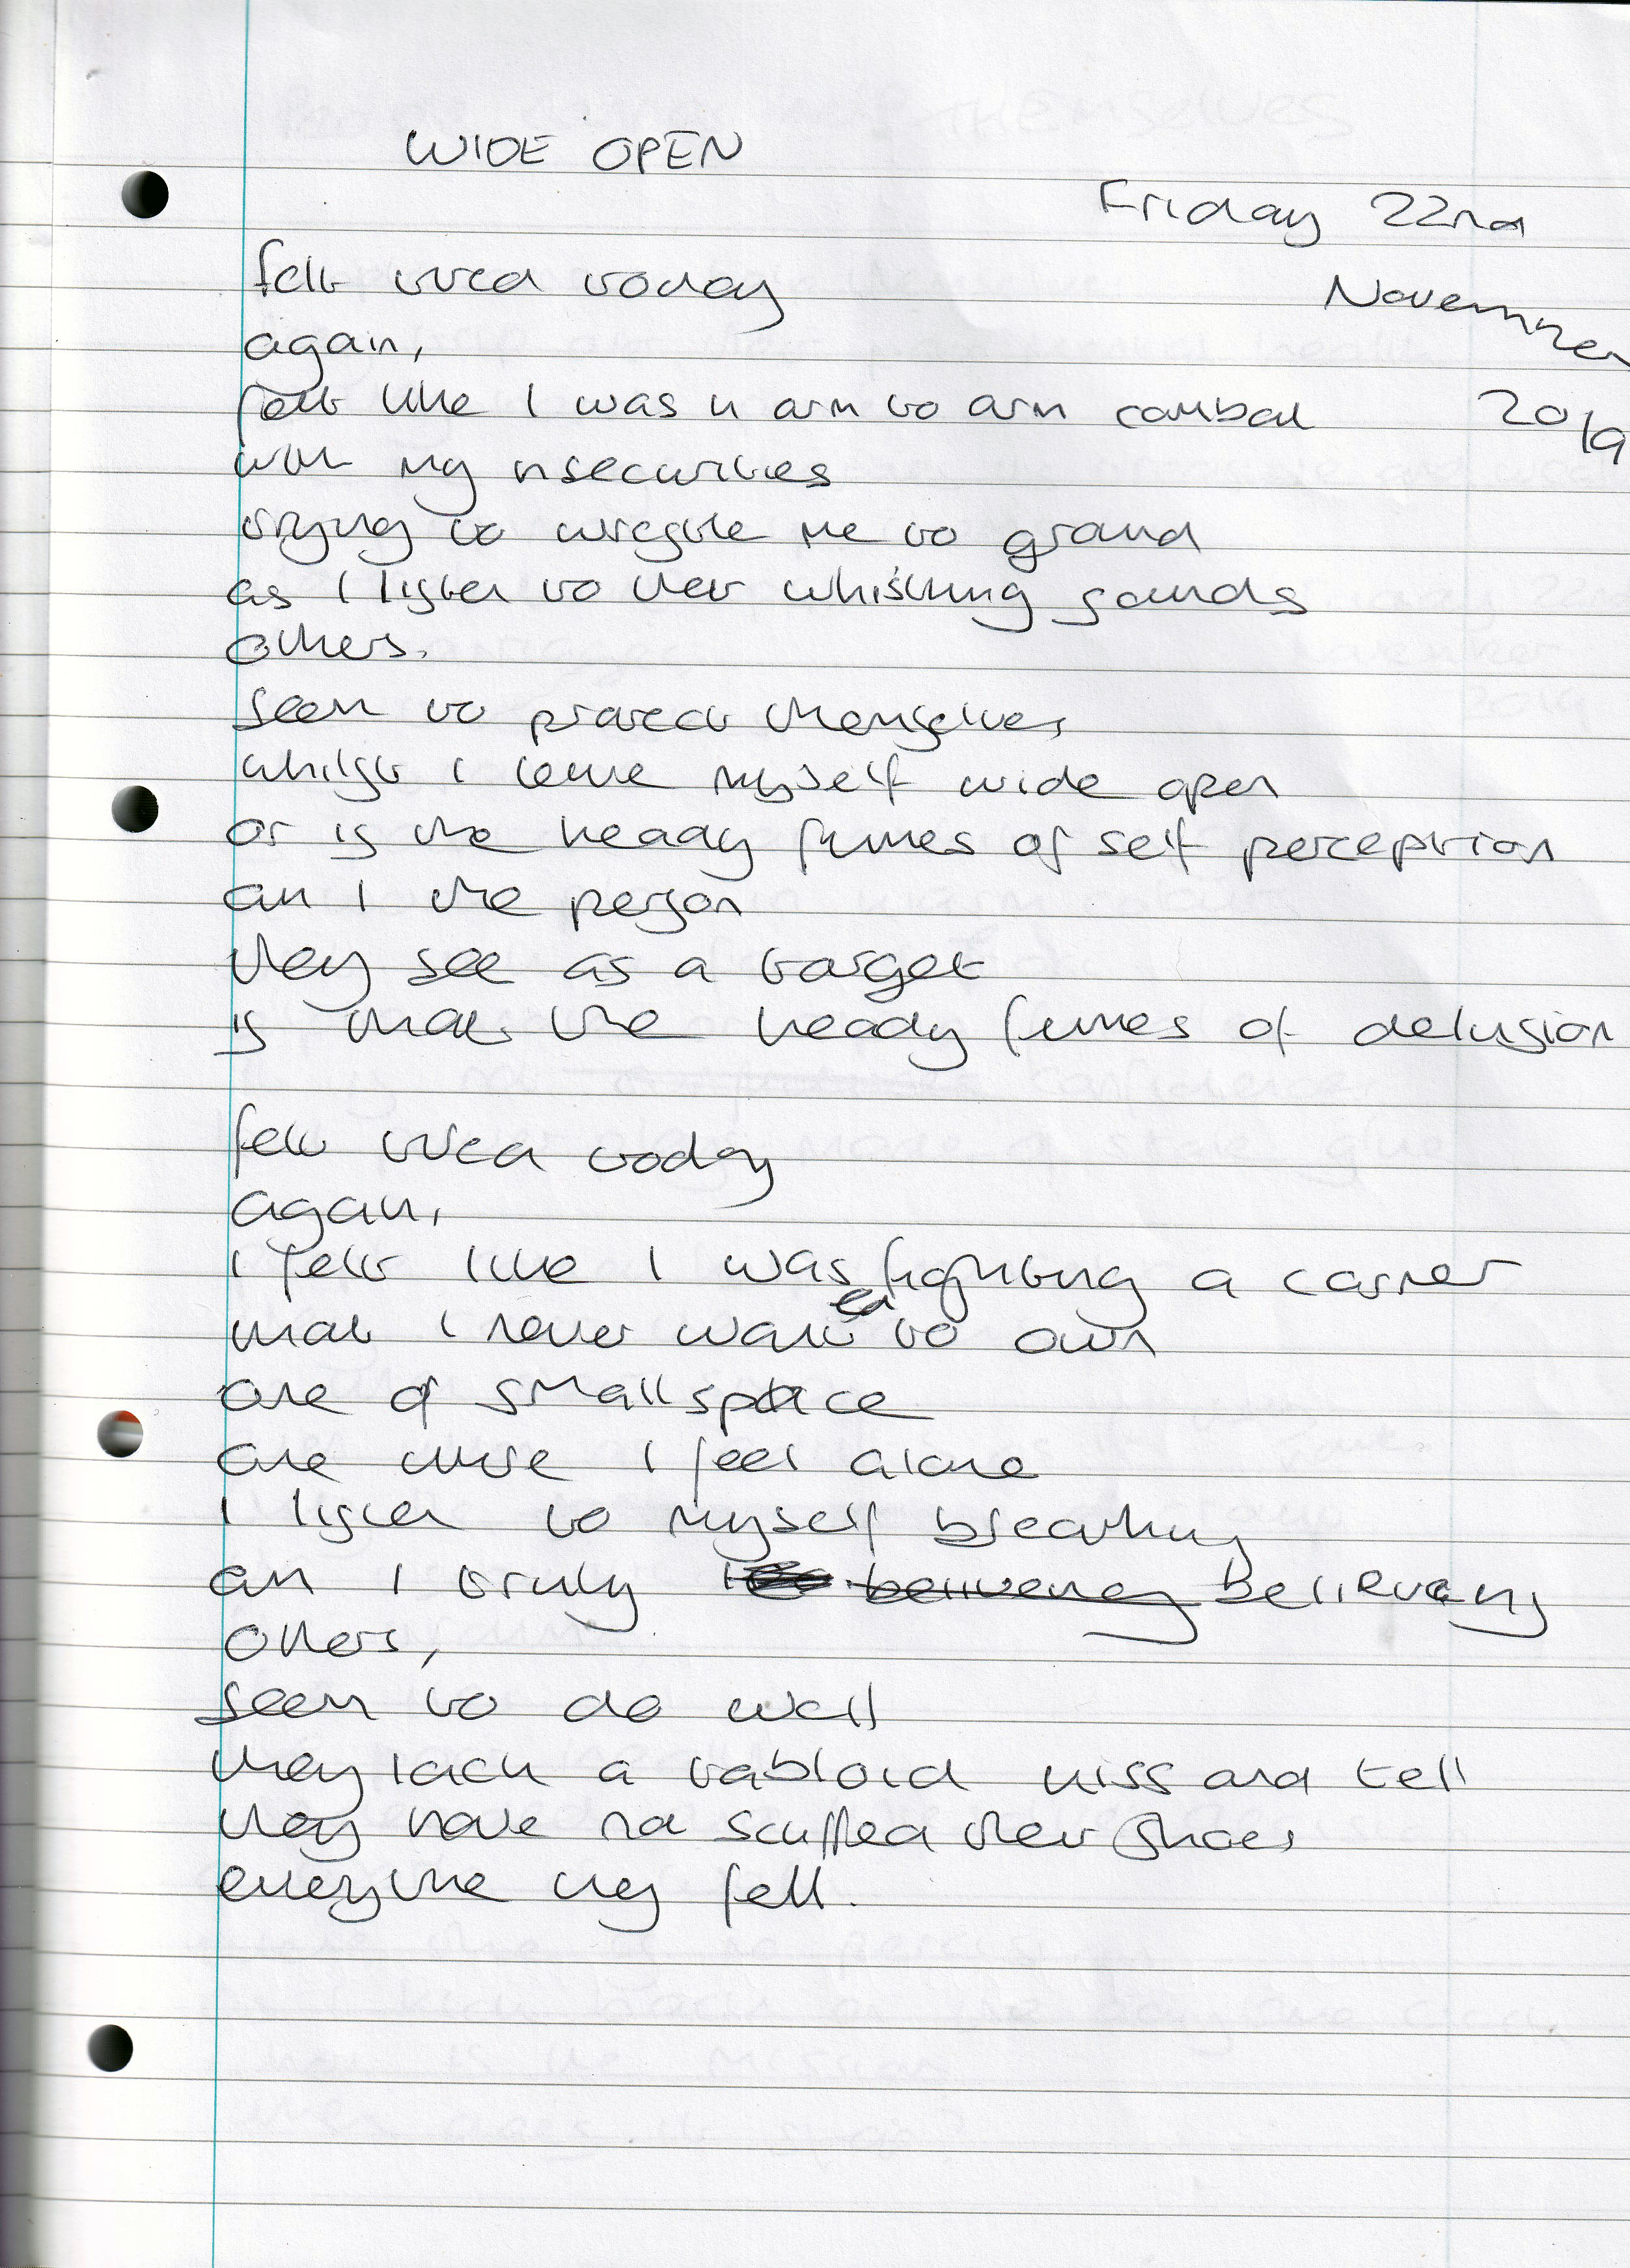 WIDE OPEN
Friday 22nd
November
2019
felt tired today
again,
felt like I was in arm to arm combat
with my insecurities
trying to wrestle me to ground
as I listen to their whistling sounds
others.
seem to protect themselves
whilst I leave myself wide open
or is the heady fumes of self perception
am I the person
they see as a target
is that the heady fumes of delusion
felt tired today
again,
I felt like I was fighting a corner
that I never wanted to own
one of small space
one where I feel alone
I listen to myself breathing
am I truly believeing believeing
others,
seem to do well
they lack a tabloid kiss and tell
they have not scuffed their shoes
everytime they fell.